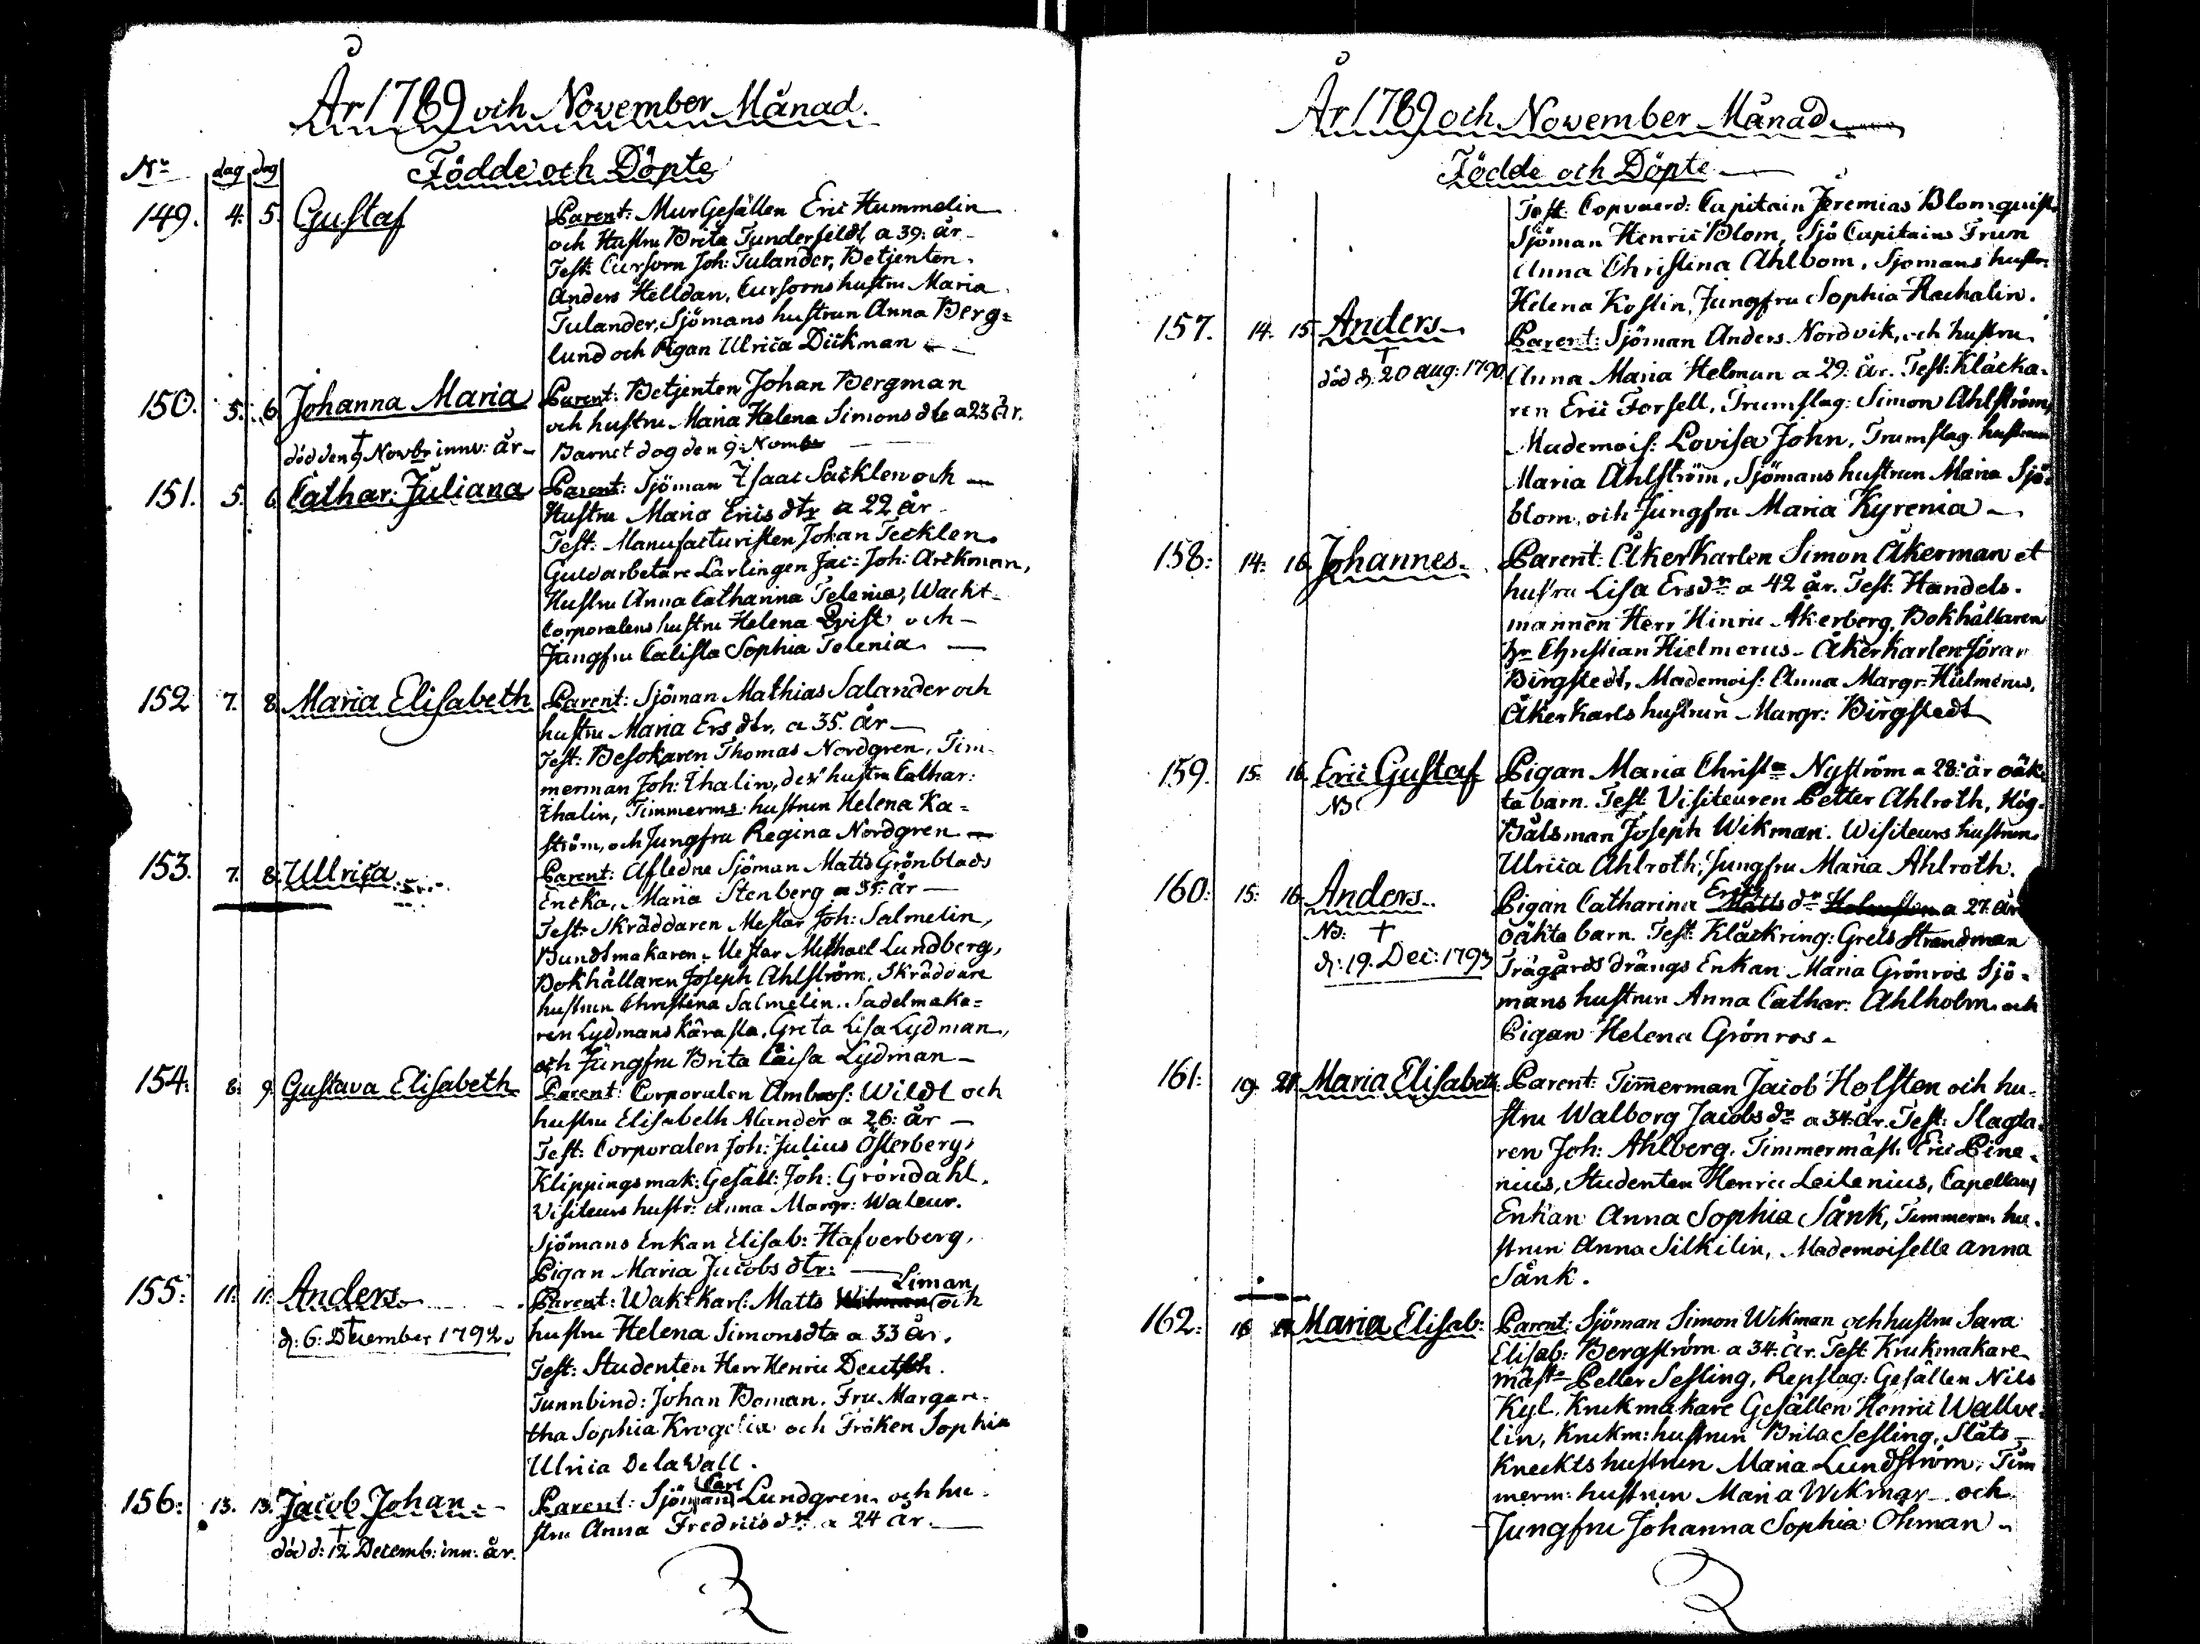 År 1789 och November Månad.
Födde och Döpte
No dag dag
149. 4. 5. Gustaf Parent: MurGesällen Eric Hummelin
och Hustru Brita Tunderfeldt, a 39: år
Test: Cursorn Joh: Tulander, Betjenten
Anders Helldan, Cursorns hustru Maria
Tulander, Sjömans hustrun Anna Berg=
lund och Pigan Ulrica Dickman
150. 5. 6. Johanna Maria Parent: Betjenten Johan Bergman
och hustru Maria Helena Simons dtr a 23 År.
† död den 9 Novbr innv: år Barnet dog den 9: Novemb
151. 5. 6. Cathar: Juliana Parent: Sjöman Isaac Sacklen och
Hustru Maria Erics dtr a 22 år
Test: Manufacturisten Johan Tecklen,
Guldarbetare Lärlingen Jac: Joh: Arckman,
Hustru Anna Catharina Telenia, Wackt-
Corporalens hustru Helena Qvist och
Jungfru Calista Sophia Telenia
152 7. 8. Maria Elisabeth Parent: Sjöman Mathias Salander och
hustru Maria Ers dtr, a 35. år
Test: Besökaren Thomas Nordgren, Tim-
merman Joh: Thalin, des hustru Cathar:
Thalin, Timmerms: hustrun Helena Ka=
ström, och Jungfru Regina Nordgren
153. 7. 8. Ulrica Parent: Afledne Sjöman Matts Grönblads
Encka, Maria Stenberg a 35: år
Test: Skräddaren Mestar Joh: Salmelin,
Bundtmakaren Mestar Michael Lundberg,
Bokhållaren Joseph Ahlström, Skräddare
hustrun Christina Salmelin. Sadelmaka=
ren Lydmans Kärasta, Greta Lisa Lydman,
och Jungfru Brita Caisa Lydman
154: 8: 9. Gustava Elisabeth Parent: Corporalen Ambros: Wildt och
hustru Elisabeth Alander a 26: år
Test: Corporalen Joh: Julius Österberg,
Klippingsmak: Gesäll: Joh: Gröndahl,
Visiteurs hustr: Anna Margr: Waleur.
Sjömans Enkan Elisab: Hafverberg,
Pigan Maria Jacobs dtr:
Liman
155: 11: 11: Anders Parent: Wakt Karl: Matts och
† d: 6: December 1792. hustru Helena Simons dtr a 33 år,
Test: Studenten Herr Henric Deutsch.
Tunnbind: Johan Boman, Fru Margare-
tha Sophia Krogelia och Fröken Sophia
Ulrica De la Vall.
Carl
156: 13. 13. Jacob Johan Parent: Sjöman Lundgren och hu-
stru Anna Fredrics dtr a 24 år.
† död d: 12 Decemb: inn: år.
År 1789 och November Månad
Födde och Döpte
Test: Copvaerd: Capitain Jeremias Blomquist
Sjöman Henric Blom, Sjö Capitains Frun
Anna Christina Ahlbom, Sjömans hustr:
Helena Kostin, Jungfru Sophia Rachalin.
157. 14. 15. Anders Parent: Sjöman Anders Nordvik, och hustru
† död d: 20 Aug: 1790 Anna Maria Helman a 29: år. Test: Kläcka-
ren Eric Forsell, Trumslag: Simon Ahlström,
Mademois: Lovisa John, Trumslag. hustrun
Maria Ahlström, Sjömans hustrun Maria Sjö-
blom, och Jungfru Maria Kyrenia
158: 14: 16. Johannes Parent: ÅkerKarlen Simon Åkerman et
hustru Lisa Ersdr a 42 år. Test: Handels-
mannen Herr Hinric Åkerberg, Bokhållaren
hr Christian Hielmerus. Åkerkarlen Göran
Birgstedt, Mademois: Anna Margr: Hielmerus,
Åkerkarls hustrun Margr: Birgstedt
159. 15. 16. Eric Gustaf Pigan Maria Christa Nyström a 28: år oäk-
NB ta barn. Test: Visiteuren Petter Ahlroth, Hög-
Båtsman Joseph Wikman. Visiteurs hustrun
Ulrica Ahlroth, Jungfru Maria Ahlroth.
Erics
160: 15: 16. Anders Pigan Catharina Matts dr a 27. år
NB: † oäkta barn. Test: Klåckring: Grels Strandman
d: 19. Dec: 1793 Trägårds drängs Enkan Maria Grönros Sjö-
mans hustrun Anna Cathar: Ahlholm och
Pigan Helena Grönros
161: 19. 21. Maria Elisabeth Parent: Timmerman Jacob Holsten och hu-
stru Walborg Jacobs dr a 34: år. Test: Slagta-
ren Joh: Ahlberg, Timmermäst: Eric Pine-
nius, Studenten Henric Leilenius, Capellans
Enkan Anna Sophia Sånk, Timmerm: hu-
strun Anna Silkilin, Mademoiselle Anna
Sånk.
162: 18 Maria Elisab: Parent: Sjöman Simon Wikman och hustru Sara
Elisab: Bergström a 34: år. Test: Krukmakare
mäst: Petter Sesling, Repslag: Gesällen Nils
Kyl, Krukmakare Gesällen Henric Wallve-
lin, Krukm: hustrun Brita Sesling, Slåts
Knechts hustrun Maria Lundström, Tim
merm: hustrun Maria Wikman och
Jungfru Johanna Sophia Öhman